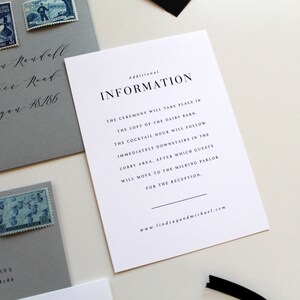 Additional
INFORMATION
THE CEREMONY WILL TAKE PLACE IN
THE LOFT OF THE DAIRY BARN.
THE COCKTAIL HOUR WILL FOLLOW
IMMEDIATELY DOWNSTAIRS IN THE
LOBBY AREA, AFTER WHICH GUESTS
WILL MOVE TO THE MILKING PARLOR
FOR THE RECEPTION.
www.lindsayandmichael.com
Randall
Road